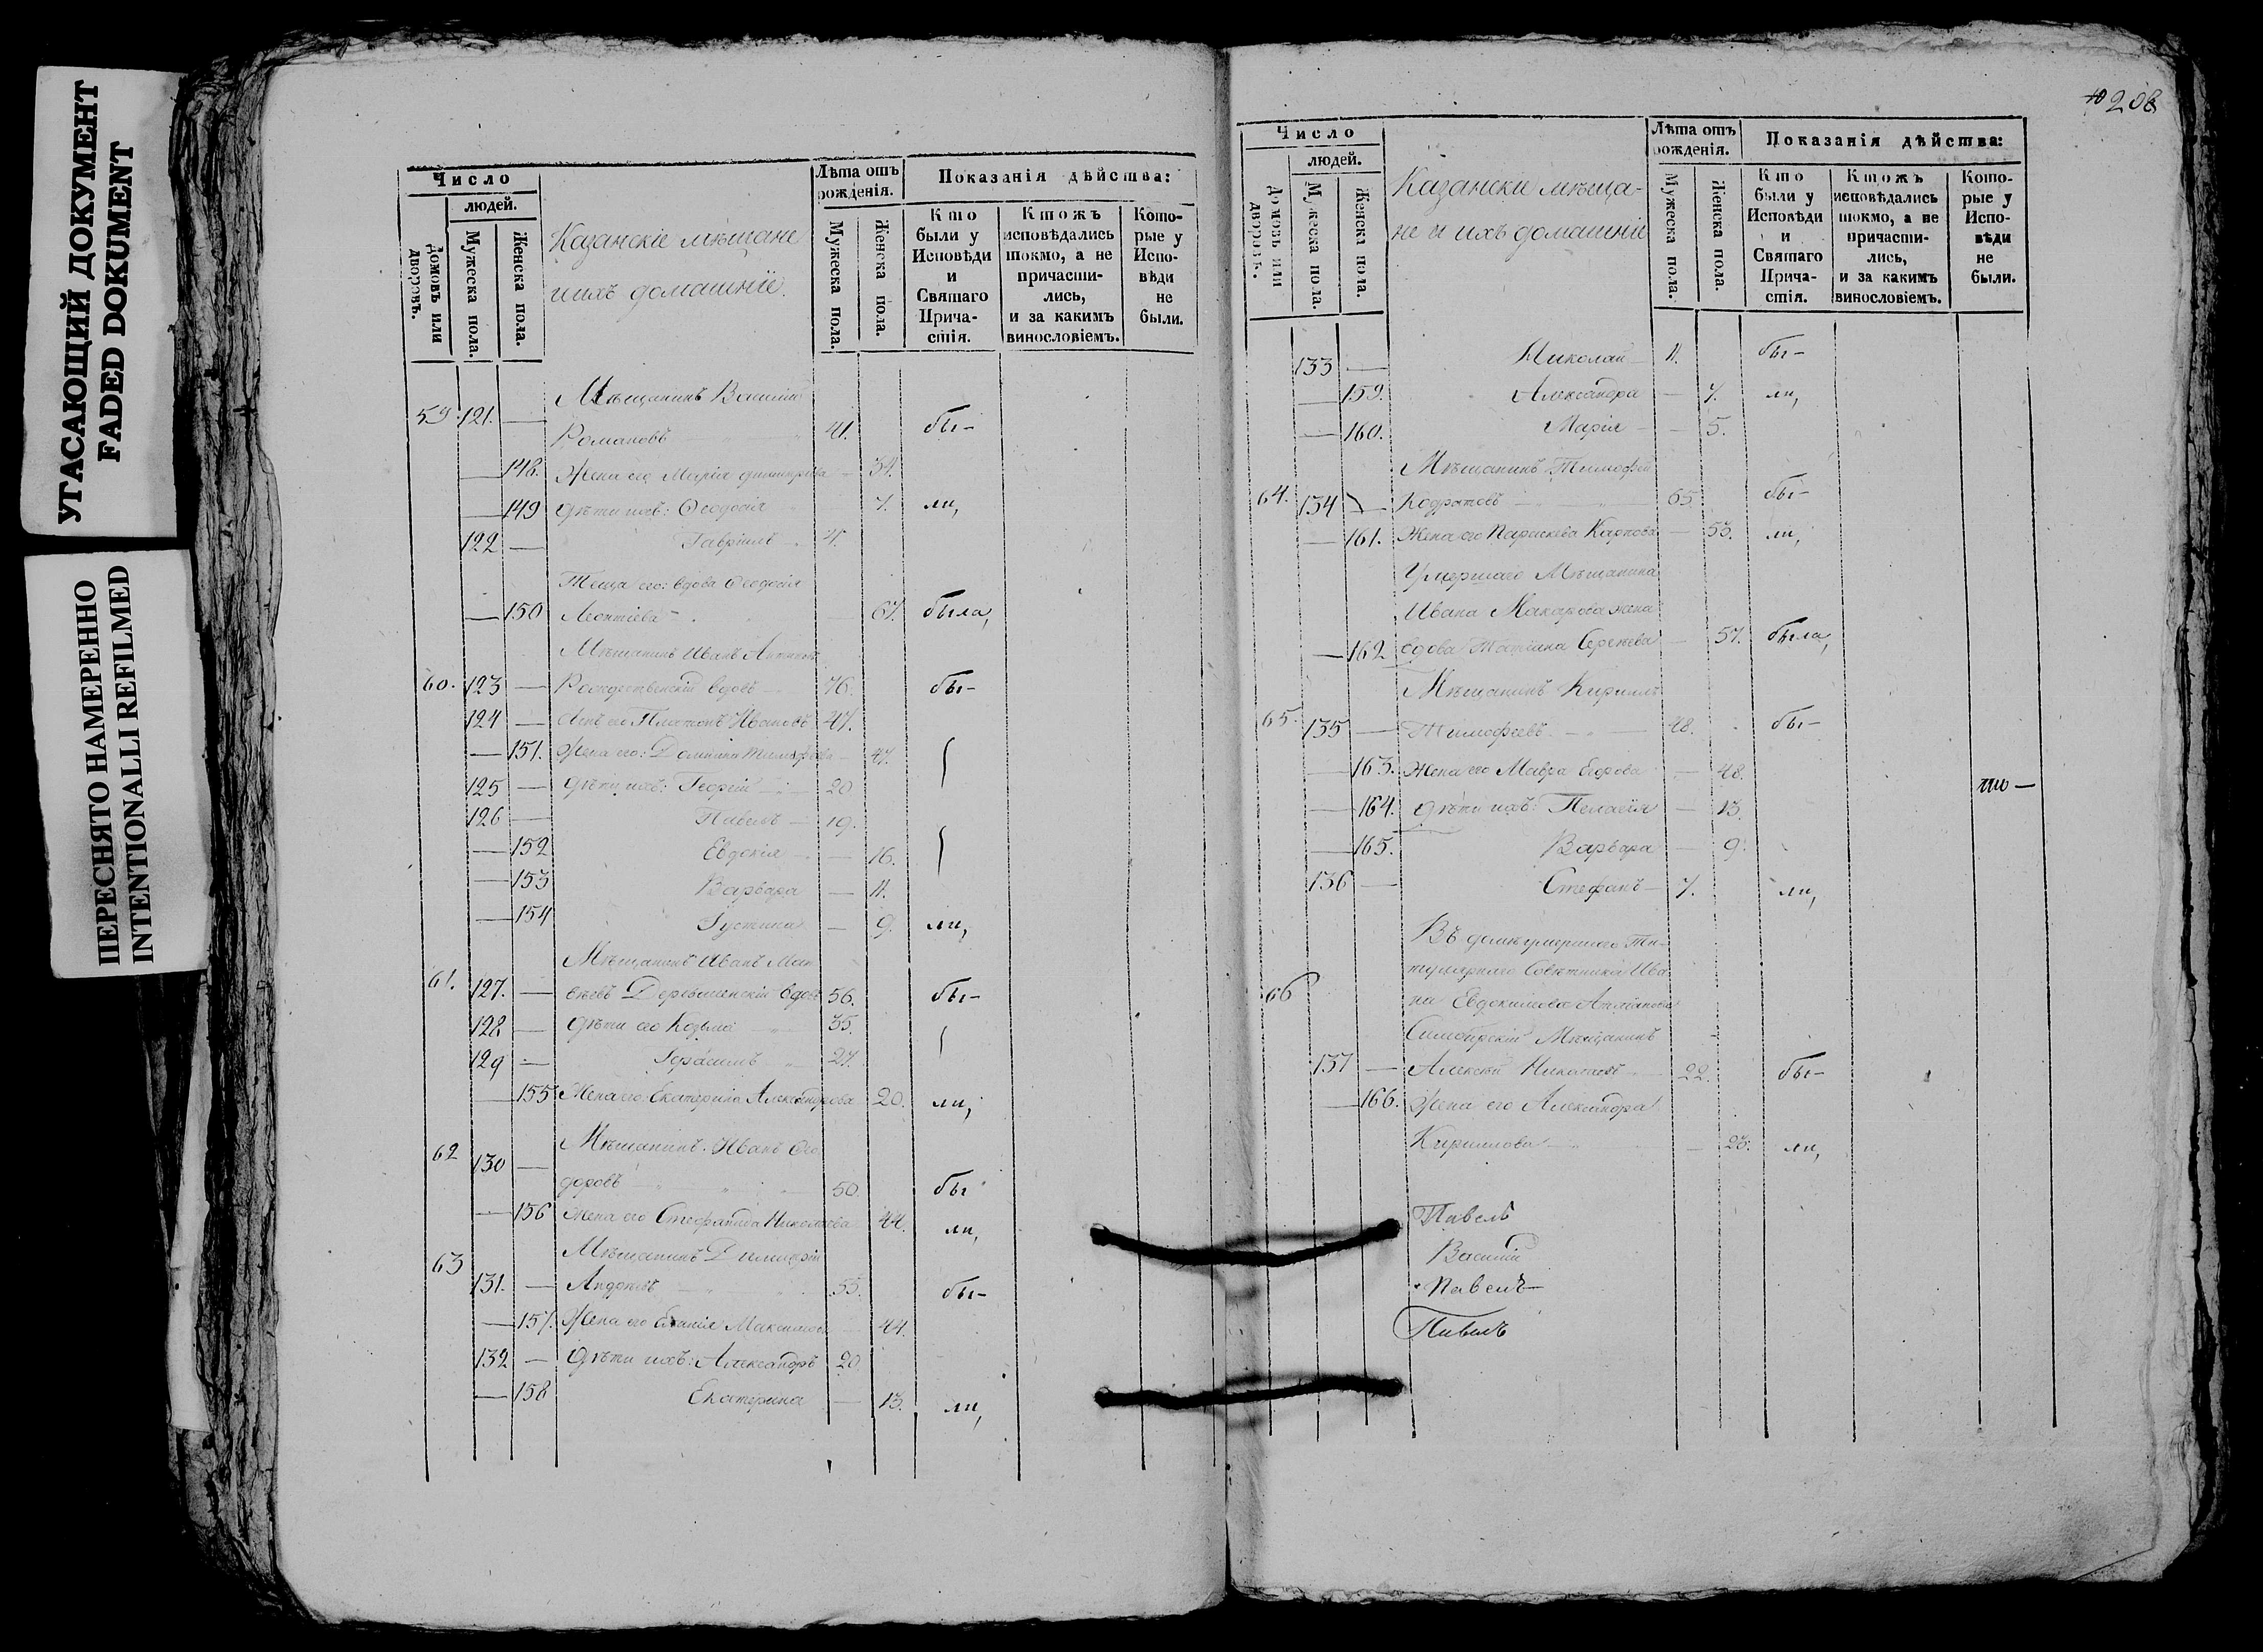 УГАСАЮЩИЙ ДОКУМЕНТ
FADED DOKUMENT
ПЕРЕСНЯТО НАМЕРЕННО
INTENTIONALLI REFILMED
Число
людей.
домовъ или дворовъ.
Мужеска пола.
Женска пола.
Казанскіе мѣщане
и ихъ домашніе.
Лѣта отъ рожденія.
Мужеска пола.
Женска пола.
Показанія дѣйства:
Кто были у Исповѣди и Святаго Причастія.
Ктожъ исповѣдались токмо, а не причастились, и за какимъ винословіемъ.
Которые у Исповѣди не были.
Мѣщанинъ Василій
59. 121. — Романовъ 41. бы-
— 148. Жена его Марія Димитріева — 34.
— 149 Дѣти ихъ: Ѳеодосія 7. ли,
122 — Гавріилъ 4.
Теща его: вдова Ѳеодосія
— 150 Леонтіева — 67. была,
Мѣщанинъ Иванъ
60. 123 — Рождественскій вдовъ 76. бы-
124 — Сынъ его Платонъ Ивановъ 47.
— 151. Жена его: Домника Тимофеева — 47.
125 — Дѣти ихъ: Георгій 20
126 — Павелъ — 19.
— 152 Евдокія — 16.
— 153 Варвара — 11.
— 154 Іустина — 9. ли,
Мѣщанинъ Иванъ Мат
61. 127. — вѣевъ вдовъ 56. бы-
128 — Дѣти его Козьма 35.
129 — Герасимъ 27.
— 155 Жена его: Екатерина Александрова 20. ли,
Мѣщанинъ Иванъ Ѳео
62 130 — доровъ 50. бы
— 156 Жена его Стефанида Николаева 44. ли,
Мѣщанинъ Димитрій
63 131. — 55. бы-
— 157. Жена его Максимова 44.
132 — Дѣти ихъ: Александръ 20.
— 158 Екатерина — 13. ли,
208
Число
людей.
домовъ или дворовъ.
Мужеска пола.
Женска пола.
Казански мѣща-
не и ихъ домашніе
Лѣта отъ рожденія.
Мужеска пола.
Женска пола.
Показанія дѣйства:
Кто были у Исповѣди и Святаго Причастія.
Ктожъ исповѣдались токмо, а не причастились, и за какимъ винословіемъ.
Которые у Исповѣди не были.
133 — Николай — 11. бы-
— 159. Александра — 7. ли,
— 160. Марія — 5.
Мѣщанинъ Тимофей
64. 134 — Кодратовъ 65 бы-
— 161. Жена его Параскева Карпова — 53. ли,
Умершаго Мѣщанина
Ивана Макарова жена
— 162 вдова Татіана Сергѣева — 57. была,
Мѣщанинъ Кириллъ
65. 135 — Тимофеевъ 48. бы-
— 163. Жена его Мавра Егорова — 48.
— 164. Дѣти ихъ: Пелагія — 13.
— 165. Варвара — 9.
136 — Стефанъ — 7. ли,
Въ домѣ умершаго Ти-
тулярнаго Совѣтника Ива
66 на Евдокимова
Симбирскій Мѣщанинъ
137 — Алексѣй 22. бы-
— 166. Жена его Александра
Кириллова — 23. ли,
Павелъ
Василій
Павелъ
Павелъ